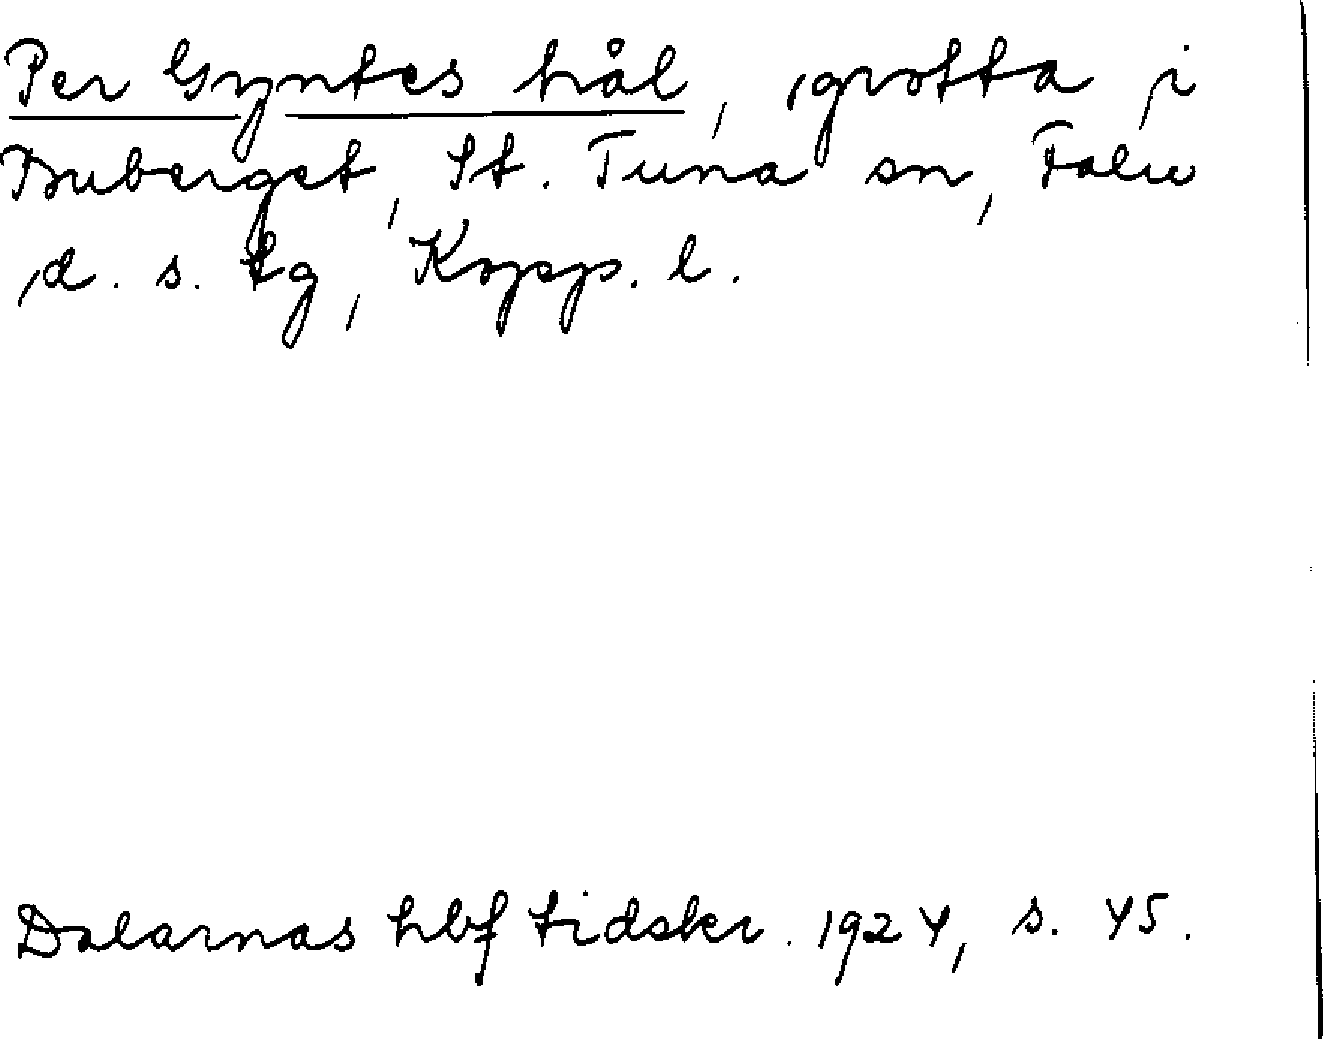 Per Gyntes hål, grotta i
Buberget, St. Tuna sn, Falu
d. s. tg, Kopp. l.
Dalarnas hbf tidskr. 1924, s. 45.